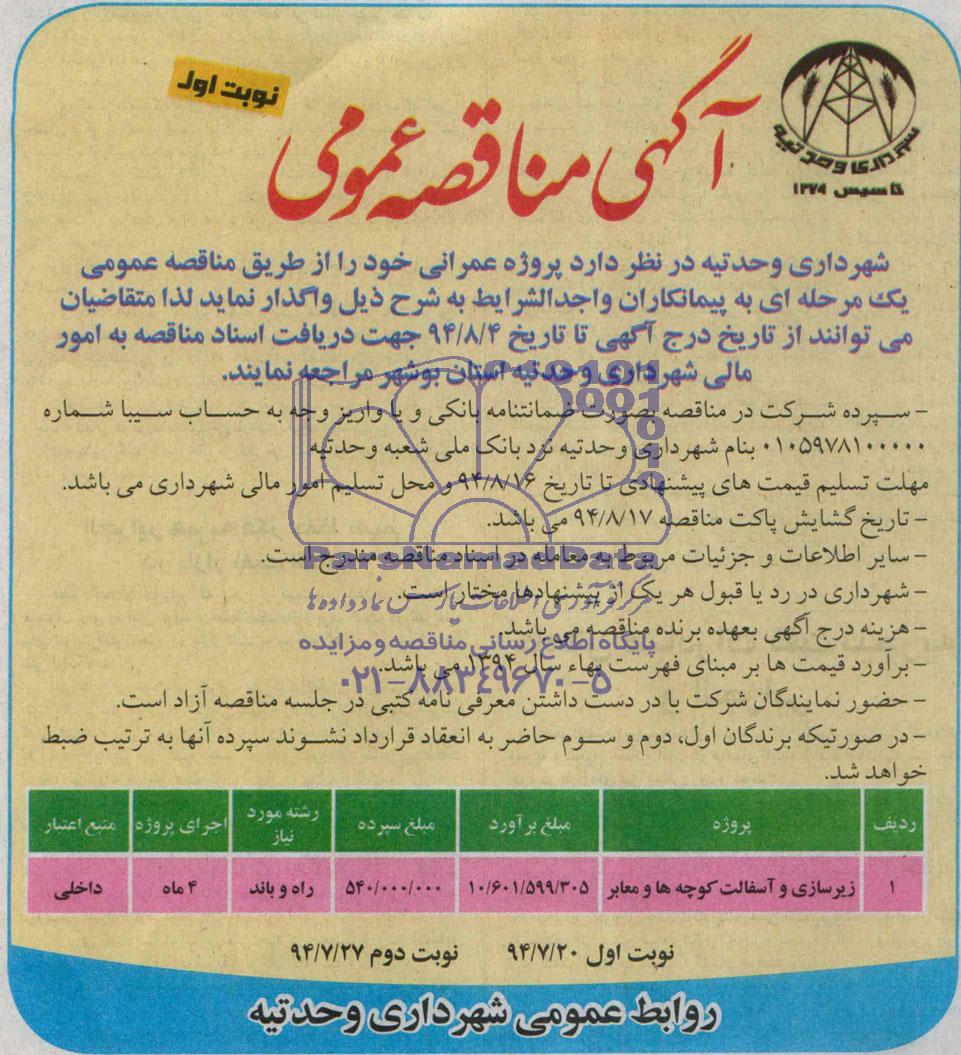 شهرداری وحدتیه
تاسیس ۱۳۷۹
نوبت اول
آگهی مناقصه عمومی
شهرداری وحدتیه در نظر دارد پروژه عمرانی خود را از طریق مناقصه عمومی
یک مرحله ای به پیمانکاران واجدالشرایط به شرح ذیل واگذار نماید لذا متقاضیان
می توانند از تاریخ درج آگهی تا تاریخ ۹۴/۸/۴ جهت دریافت اسناد مناقصه به امور
مالی شهرداری وحدتیه استان بوشهر مراجعه نمایند.
- سپرده شرکت در مناقصه بصورت ضمانتنامه بانکی و یا واریز وجه به حساب سیبا شماره
۰۱۰۵۹۷۸۱۰۰۰۰۰ بنام شهرداری وحدتیه نزد بانک ملی شعبه وحدتیه
مهلت تسلیم قیمت های پیشنهادی تا تاریخ ۹۴/۸/۱۶ و محل تسلیم امور مالی شهرداری می باشد.
- تاریخ گشایش پاکت مناقصه ۹۴/۸/۱۷ می باشد.
- سایر اطلاعات و جزئیات مربوط به معامله در اسناد مناقصه مندرج است.
- شهرداری در رد یا قبول هر یک از پیشنهادها مختار است.
- هزینه درج آگهی بعهده برنده مناقصه می باشد.
- برآورد قیمت ها بر مبنای فهرست بهاء سال ۱۳۹۴ می باشد.
- حضور نمایندگان شرکت با در دست داشتن معرفی نامه کتبی در جلسه مناقصه آزاد است.
- در صورتیکه برندگان اول، دوم و سوم حاضر به انعقاد قرارداد نشوند سپرده آنها به ترتیب ضبط
خواهد شد.
ردیف پروژه مبلغ برآورد مبلغ سپرده رشته مورد نیاز اجرای پروژه منبع اعتبار
۱ زیرسازی و آسفالت کوچه ها و معابر ۱۰/۶۰۱/۵۹۹/۳۰۵ ۵۴۰/۰۰۰/۰۰۰ راه و باند ۴ ماه داخلی
نوبت اول ۹۴/۷/۲۰ نوبت دوم ۹۴/۷/۲۷
روابط عمومی شهرداری وحدتیه
ParsNamadData
مرکز فرآوری اطلاعات پارس نماد داده ها
پایگاه اطلاع رسانی مناقصه و مزایده
۰۲۱-۸۸۳۴۹۶۷۰-۵